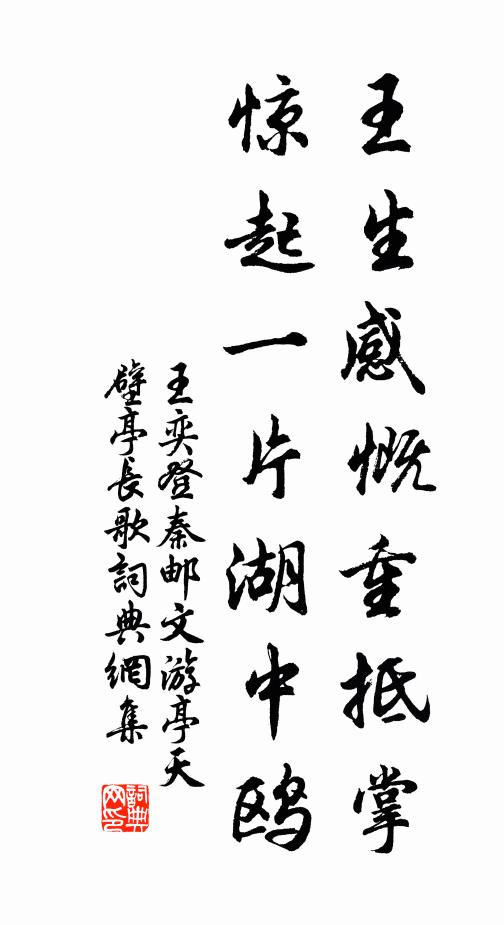 王生感慨重抵掌
惊起一片湖中鸥
王奕登秦邮文游亭天
壁亭長歌詞典網集
詞典
网印